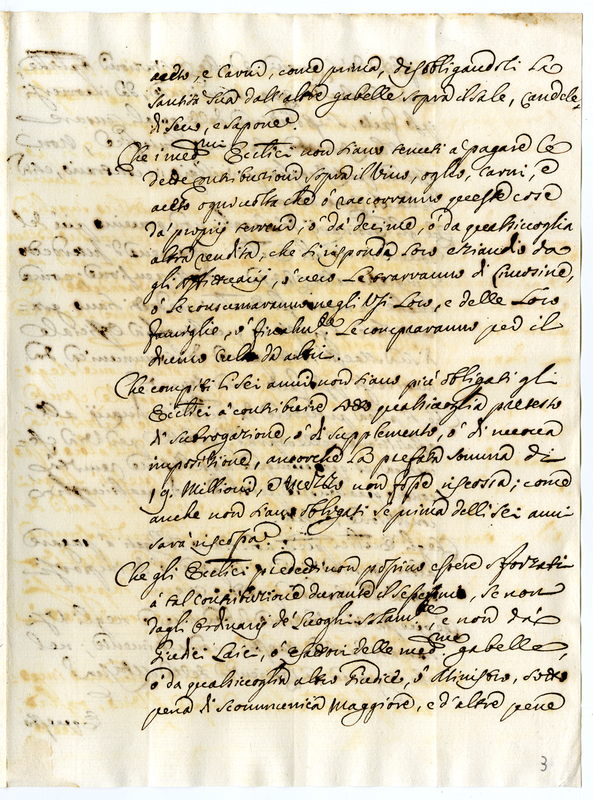 aceto, e Carne, come prima, disobbligandoli La
Santità Sua dall'altre gabelle sopra il sale, Candele,
di Sevo, e sapone.
Che i med.mi Eccl.ici non siano tenuti à pagare Le
dette Contribuzioni sopra il Vino, oglio, Carni, e
aceto ogni volta che ò raccorranno queste cose
da proprij terreni, ò dà decime, ò da qualsivoglia
altra rendita, che si risponda loro etiandio da
gli, ò vero Le trarranno di Limosine,
ò Le consumaranno negli Usi Loro, e delle Loro
famiglie, ò finalm.te Le compraranno per il
da altri.
Che compiti li sei anni non siano più obligati gli
Eccl.ici à contribuire sotto qualsivoglia pretesto
di surrogazione, ò di supplemento, ò di nuova
imposizione, ancorche La prefata somma di
19. Millioni, e mezzo non fosse riscossa; come
anche non siano obligati se prima delli sei anni
sarà riscossa.
Che gli Eccl.ici predetti non possino essere sforzati
à tal contribuzione durante il sessennio, se non
dagli Ordinarij de Luoghi, e non dà
Giudici Laici, ò esattori delle med.me gabelle,
ò da qualsivoglia altro Giudice, ò Ministro, sotto
pena di scommunica Maggiore, e d'altre pene
3